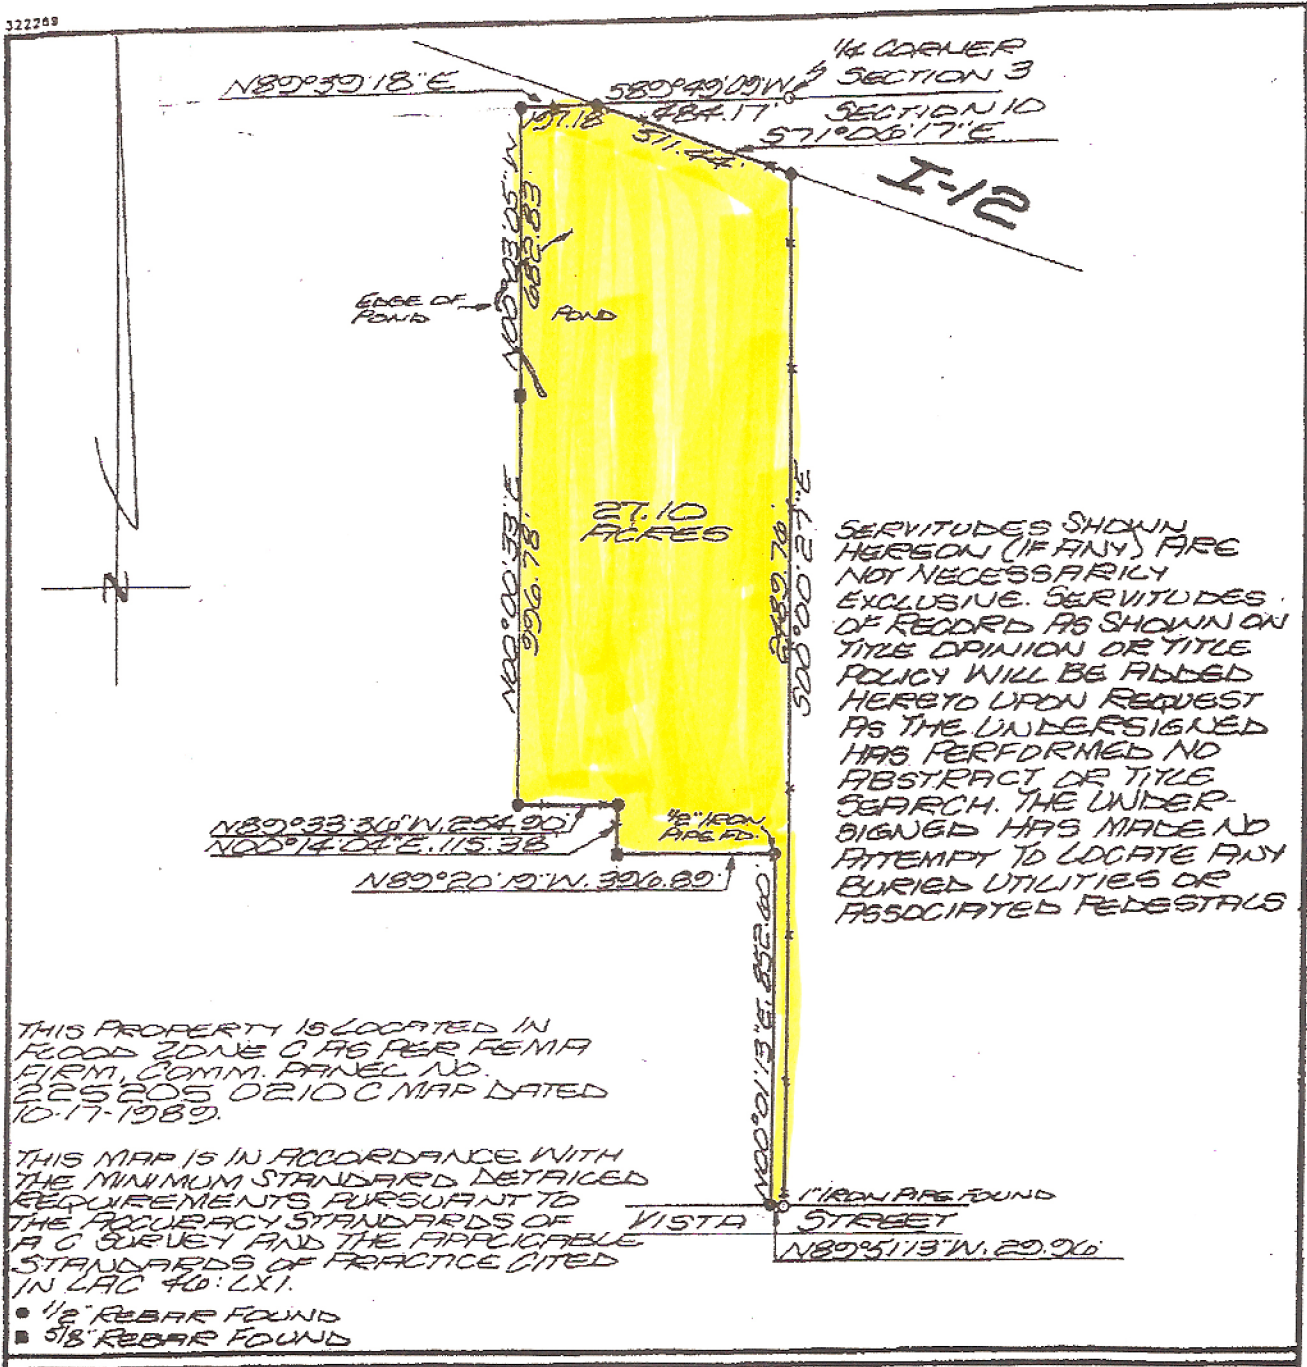 322269
1/4 CORNER
SECTION 3
N89°39'18"E
S89°49'09"W
484.17'
SECTION 10
197.18'
511.44'
S71°06'17"E
I-12
N00°03'05"W
682.83'
EDGE OF
POND
POND
27.10
ACRES
N00°00'33"E
996.78'
S00°00'27"E
2489.76'
SERVITUDES SHOWN
HEREON (IF ANY) ARE
NOT NECESSARILY
EXCLUSIVE. SERVITUDES
OF RECORD AS SHOWN ON
TITLE OPINION OR TITLE
POLICY WILL BE ADDED
HERETO UPON REQUEST
AS THE UNDERSIGNED
HAS PERFORMED NO
ABSTRACT OR TITLE
SEARCH. THE UNDER-
SIGNED HAS MADE NO
ATTEMPT TO LOCATE ANY
BURIED UTILITIES OR
ASSOCIATED PEDESTALS
N
N89°33'36"W. 254.90'
N00°14'04"E. 115.38'
1/2" IRON
PIPE FD.
N89°20'19"W. 396.89'
N00°01'13"E. 852.60'
THIS PROPERTY IS LOCATED IN
FLOOD ZONE C AS PER FEMA
FIRM, COMM. PANEL NO.
225205 0210 C MAP DATED
10-17-1989.
THIS MAP IS IN ACCORDANCE WITH
THE MINIMUM STANDARD DETAILED
REQUIREMENTS PURSUANT TO
THE ACCURACY STANDARDS OF
A C SURVEY AND THE APPLICABLE
STANDARDS OF PRACTICE CITED
IN LAC 46: LXI.
1" IRON PIPE FOUND
VISTA STREET
N89°51'13"W. 29.96'
1/2" REBAR FOUND
5/8" REBAR FOUND